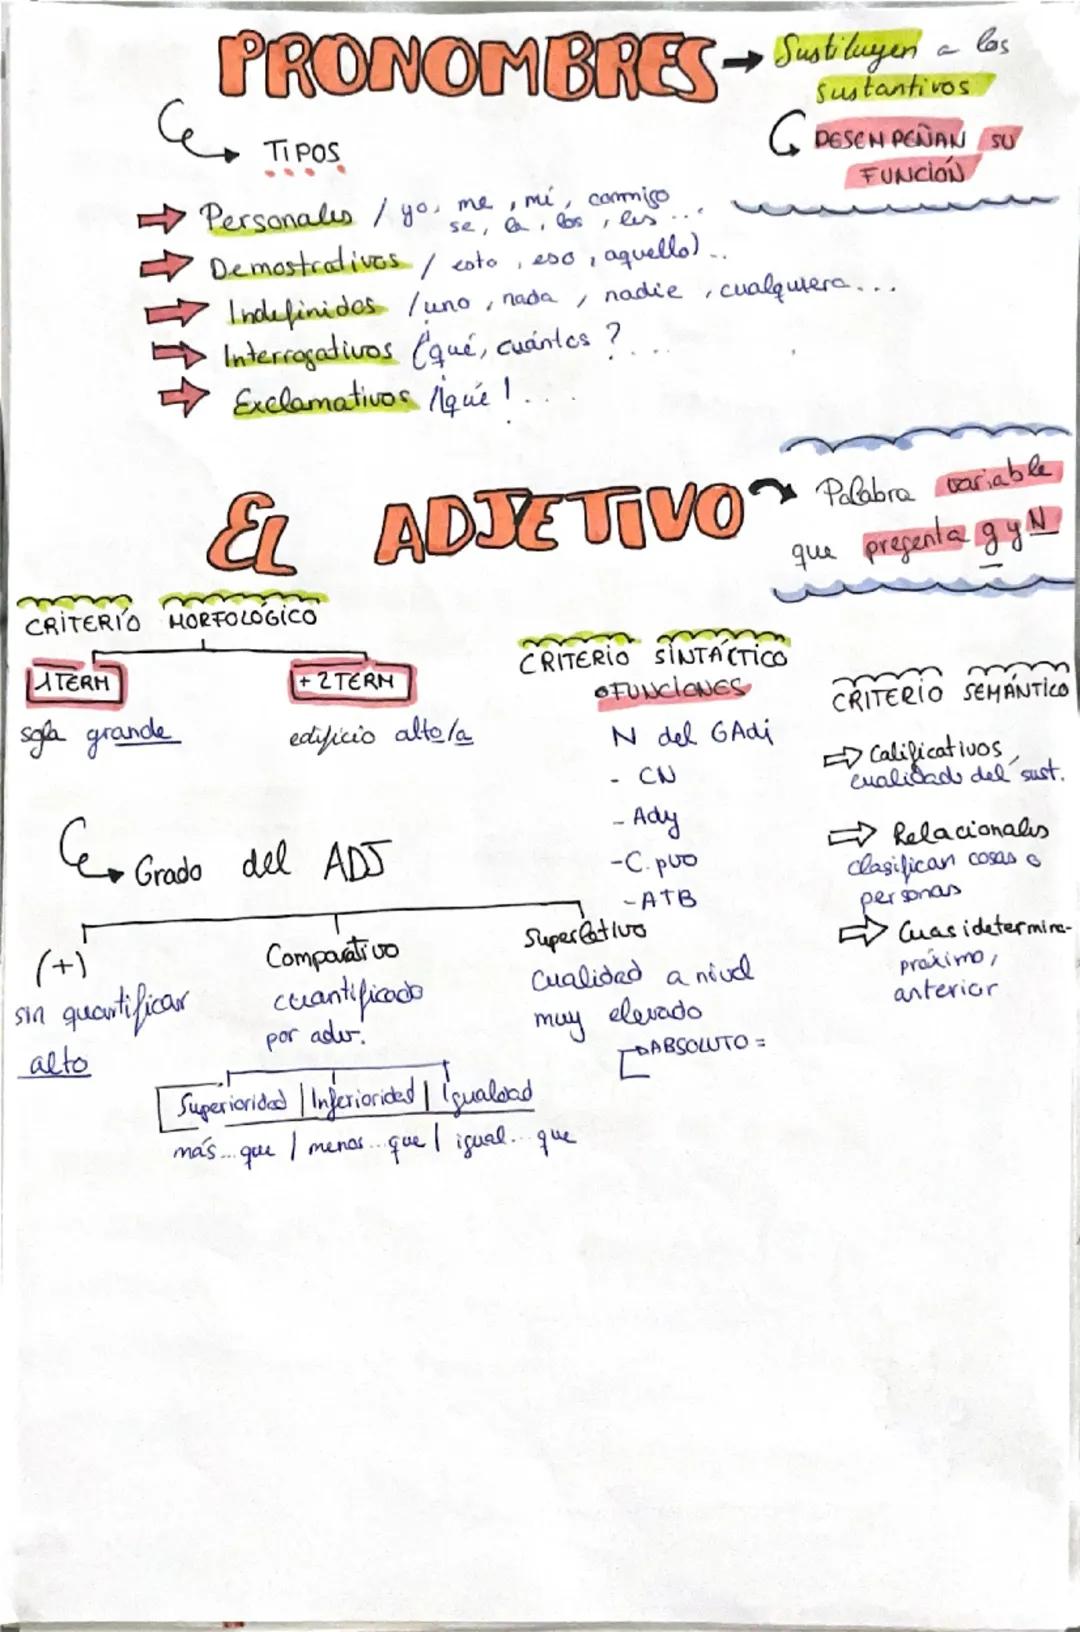 PRONOMBRES → Sustituyen a los
sustantivos
DESEMPEÑAN SU
FUNCIÓN
TIPOS
Personales / yo, me, mí, conmigo
se, la, los, les...
Demostrativos / esto, eso, aquello)..
Indefinidos /uno, nada, nadie, cualquiera...
Interrogativos ¿qué, cuántos ?...
Exclamativos /¡qué !...
EL ADJETIVO
Palabra variable
que presenta g y N
CRITERIO MORFOLÓGICO
1TERM
+ 2 TERM
sofa grande
edificio alto/a
CRITERIO SINTÁCTICO
FUNCIONES
N del GAdj
- CN
- Ady
- C. pvo
- ATB
CRITERIO SEMÁNTICO
⇒ Calificativos,
cualidad del sust.
⇒ Relacionales
clasifican cosas o
personas
⇒ Cuasidetermina-
próximo,
anterior
Grado del ADJ
(+)
sin quantificar
alto
Comparativo
cuantificado
por adv.
Superioridad | Inferioridad | Igualdad
más...que | menos...que | igual...que
Superlativo
Cualidad a nivel
muy elevado
ABSOLUTO =